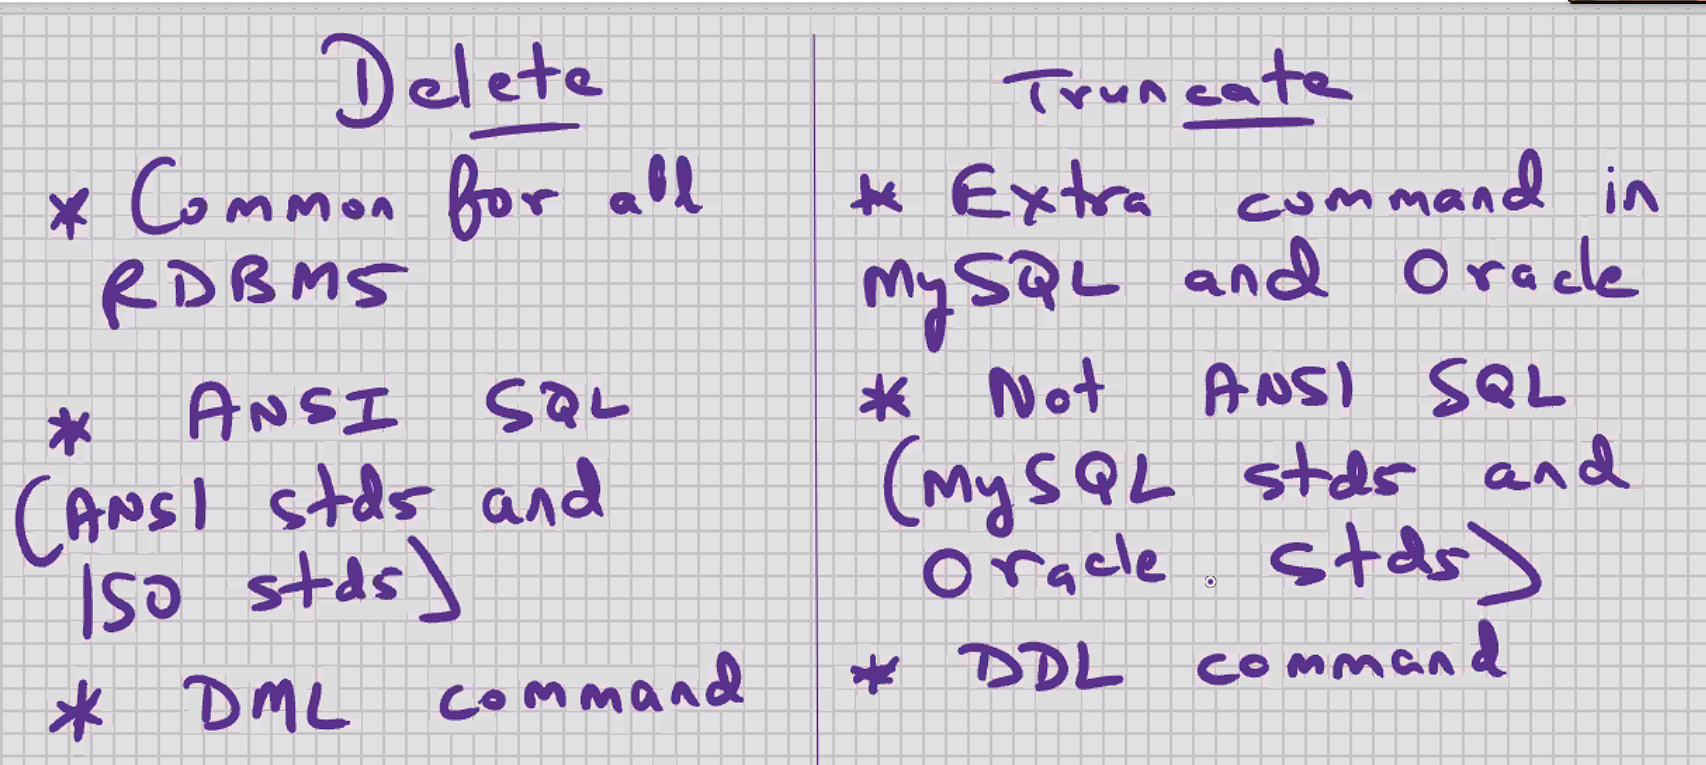 Delete
* Common for all
RDBMS
* ANSI SQL
(ANSI stds and
ISO stds)
* DML command
Truncate
* Extra command in
MySQL and Oracle
* Not ANSI SQL
(MySQL stds and
Oracle stds)
* DDL command